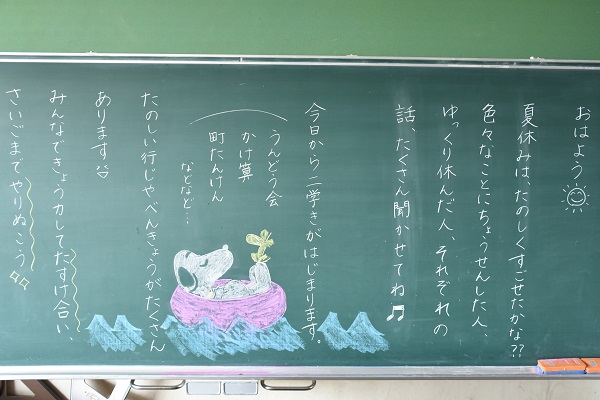 おはよう
夏休みは、たのしくすごせたかな??
色々なことにちょうせんした人、
ゆっくり休んだ人、それぞれの
話、たくさん聞かせてね♫
今日から二学きがはじまります。
うんどう会
かけ算
町たんけん
などなど…
たのしい行じやべんきょうがたくさん
あります
みんなできょう力してたすけ合い、
さいごまでやりぬこう